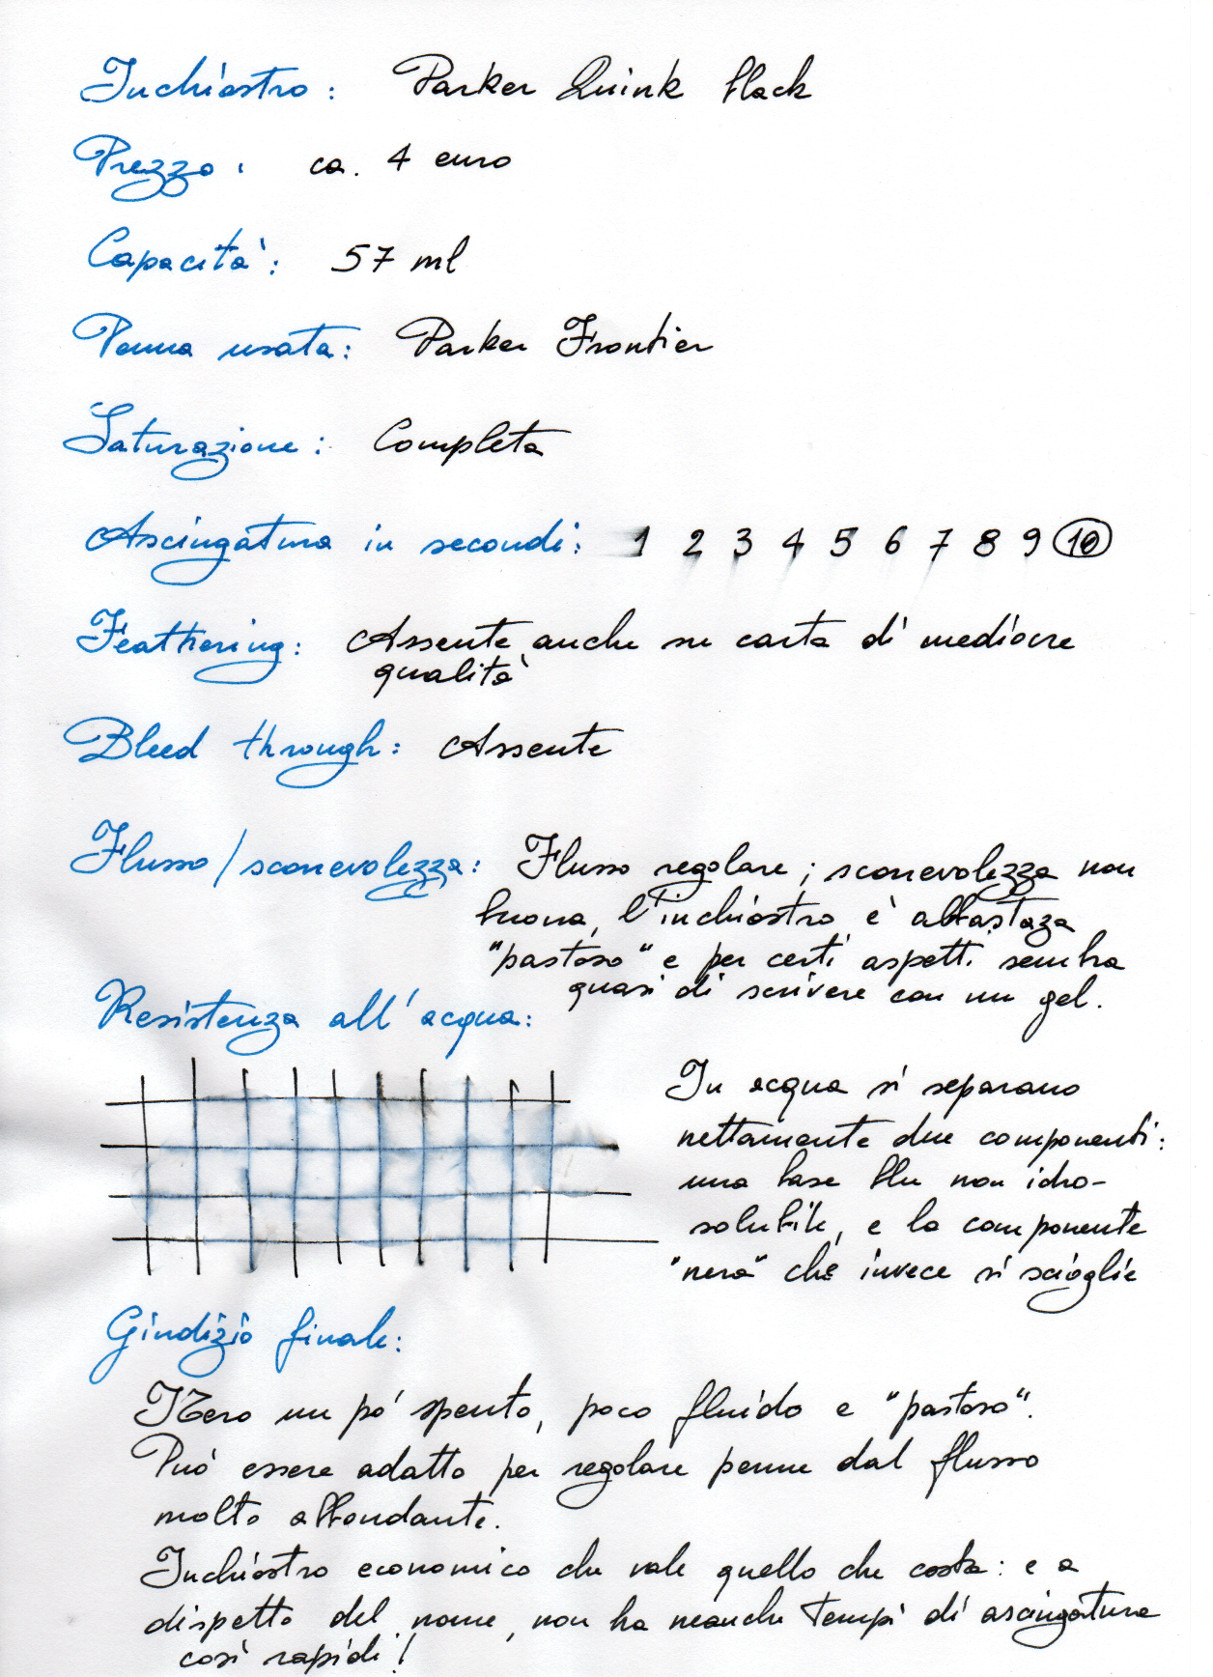 Inchiostro: Parker Quink black
Prezzo: ca. 4 euro
Capacità: 57 ml
Penna usata: Parker Frontier
Saturazione: Completa
Asciugatura in secondi: 1 2 3 4 5 6 7 8 9 10
Feathering: Assente anche su carta di mediocre
qualità
Bleed through: Assente
Flusso/scorrevolezza: Flusso regolare; scorrevolezza non
buona, l'inchiostro è abbastaza
"pastoso" e per certi aspetti sembra
quasi di scrivere con un gel.
Resistenza all'acqua:
In acqua si separano
nettamente due componenti:
una base blu non idro-
solubile, e la componente
"nera" che invece si scioglie
Giudizio finale:
Nero un po' spento, poco fluido e "pastoso".
Può essere adatto per regolare penne dal flusso
molto abbondante.
Inchiostro economico che vale quello che costa: e a
dispetto del nome, non ha neanche tempi di asciugatura
così rapidi!